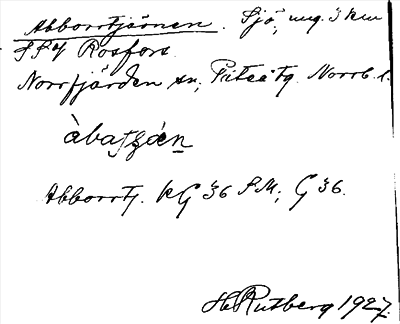 Abborrtjärnen. Sjö, ung. 3 km
SSV Rosfors.
Norrfjärden sn, Piteå tg. Norrb. l.
àbaʈʂǽn
Abborrtj. KG 36 SM; G 36.
H. Rutberg 1927.